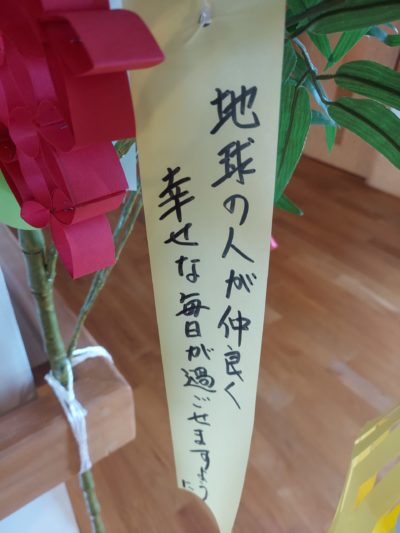 地球の人が仲良く
幸せな毎日が過ごせますように